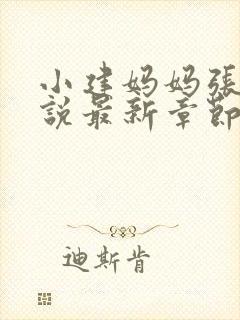 小建妈妈張
說最新章節
迪斯肯